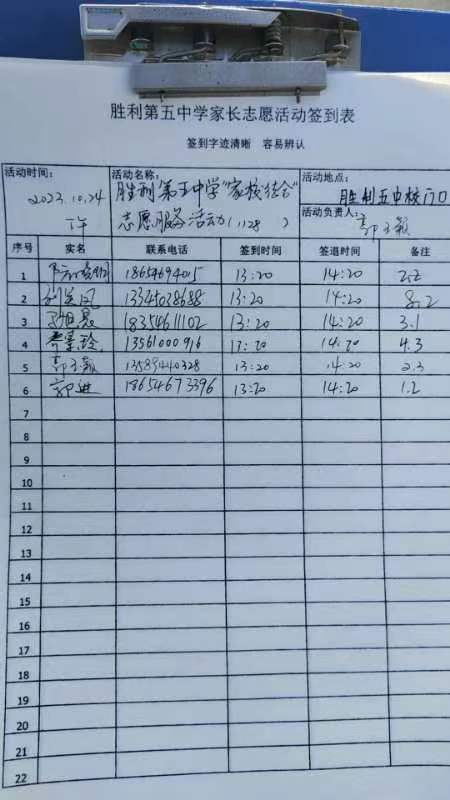 胜利第五中学家长志愿活动签到表
签到字迹清晰 容易辨认
活动时间： 活动名称： 活动地点：
2023.10.24 胜利第五中学“家校结合” 胜利五中校门口
下午 志愿服务活动（1128） 活动负责人：
序号 实名 联系电话 签到时间 签退时间 备注
1 13:20 14:20 2.2
2 13:20 14:20 8.2
3 18354611102 13:20 14:20 3.1
4 13561000916 13:20 14:20 4.3
5 13589440328 13:20 14:20 2.3
6 18654673396 13:20 14:20 1.2
7
8
9
10
11
12
13
14
15
16
17
18
19
20
21
22